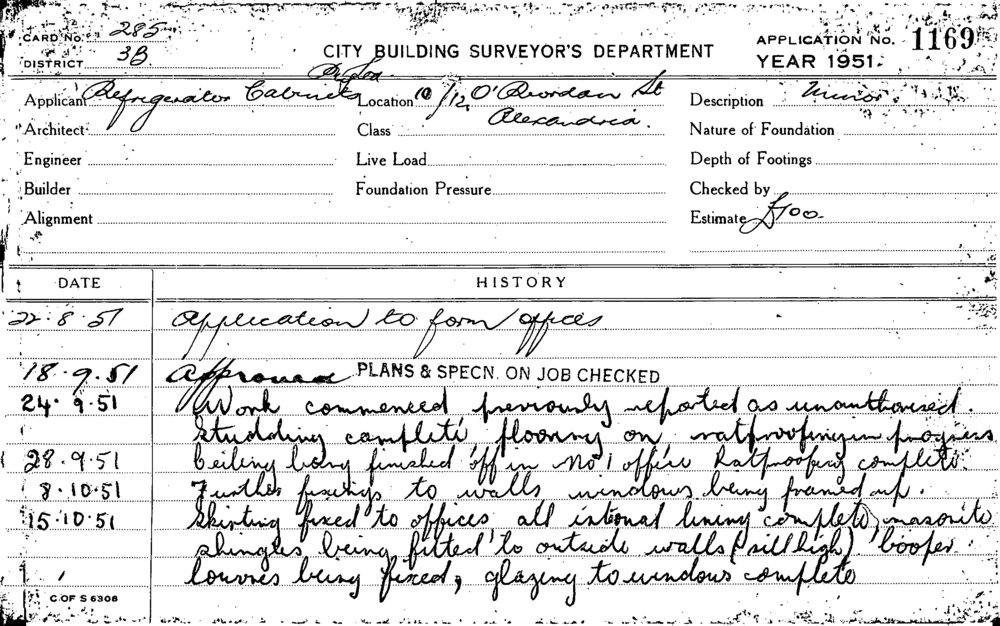 CARD No. 285
DISTRICT 3B
CITY BUILDING SURVEYOR'S DEPARTMENT
APPLICATION No. 1169
YEAR 1951.
Applicant Refrigerator Cabinets
Location 10/12 O'Riordan St
Alexandria.
Description Minor.
Architect
Class
Nature of Foundation
Engineer
Live Load
Depth of Footings
Builder
Foundation Pressure
Checked by
Alignment
Estimate £700
DATE HISTORY
22.8.51 Application to form offices
18.9.51 Approved PLANS & SPECN. ON JOB CHECKED
24.9.51 Work commenced previously reported as unauthorised.
Studding complete flooring on ratproofing in progress
28.9.51 Ceiling being finished off in No 1 office Ratproofing complete.
8.10.51 Further fixings to walls windows being framed up.
15.10.51 Skirting fixed to offices, all internal lining complete, masonite
shingles being fitted to outside walls (sill high)
louvres being fixed, glazing to windows complete
C OF S 6308